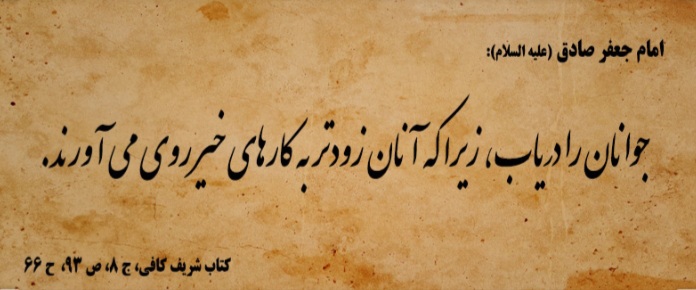 امام جعفر صادق (علیه السلام):
جوانان را دریاب، زیرا که آنان زودتر به کارهای خیر روی می آورند.
کتاب شریف کافی، ج ۸، ص ۹۳، ح ۶۶